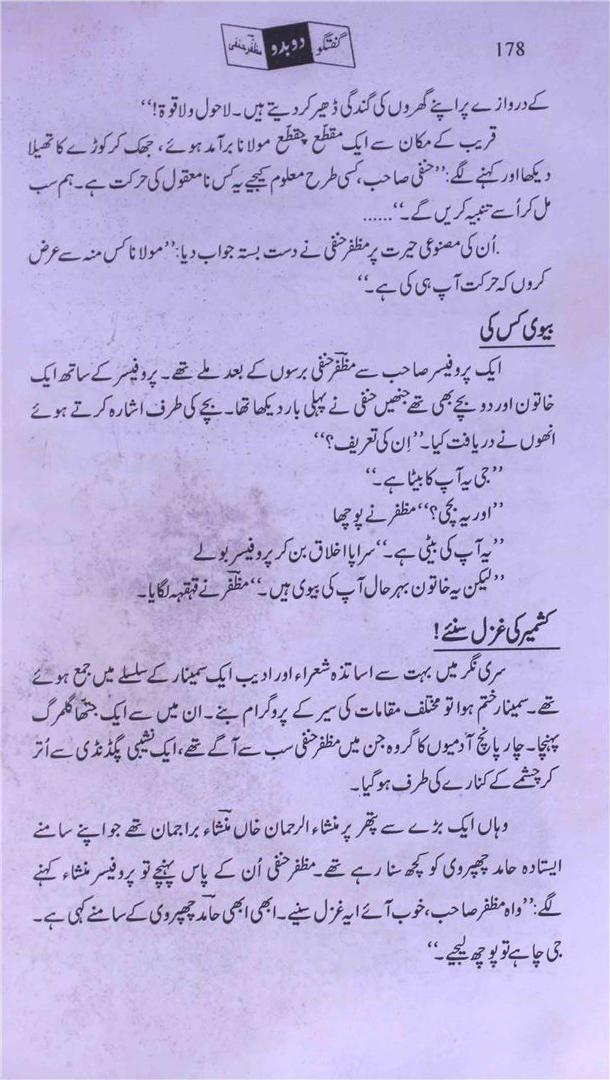 178
گفتگو دوبدو مظفر حنفی
کے دروازے پر اپنے گھروں کی گندگی ڈھیر کر دیتے ہیں۔ لاحول ولا قوۃ!‘‘
قریب کے مکان سے ایک مقطّع چقطّع مولانا برآمد ہوئے، جھک کر کوڑے کا تھیلا
دیکھا اور کہنے لگے: ’’حنفی صاحب، کسی طرح معلوم کیجیے یہ کس نامعقول کی حرکت ہے۔ ہم سب
مل کر اُسے تنبیہ کریں گے۔‘‘......
اُن کی مصنوعی حیرت پر مظفر حنفی نے دست بستہ جواب دیا: ’’مولانا کس منہ سے عرض
کروں کہ حرکت آپ ہی کی ہے۔‘‘
بیوی کس کی
ایک پروفیسر صاحب سے مظفرؔ حنفی برسوں کے بعد ملے تھے۔ پروفیسر کے ساتھ ایک
خاتون اور دو بچے بھی تھے جنھیں حنفی نے پہلی بار دیکھا تھا۔ بچے کی طرف اشارہ کرتے ہوئے
انھوں نے دریافت کیا۔ ’’اِن کی تعریف؟‘‘
’’جی یہ آپ کا بیٹا ہے۔‘‘
’’اور یہ بچی؟‘‘ مظفر نے پوچھا
’’یہ آپ کی بیٹی ہے۔‘‘ سراپا اخلاق بن کر پروفیسر بولے
’’لیکن یہ خاتون بہر حال آپ کی بیوی ہیں۔‘‘ مظفرؔ نے قہقہہ لگایا۔
کشمیر کی غزل سنئے!
سری نگر میں بہت سے اساتذہ شعراء اور ادیب ایک سمینار کے سلسلے میں جمع ہوئے
تھے۔ سمینار ختم ہوا تو مختلف مقامات کی سیر کے پروگرام بنے۔ ان میں سے ایک جتھا گلمرگ
پہنچا۔ چار پانچ آدمیوں کا گروہ جن میں مظفر حنفی سب سے آگے تھے، ایک نشیبی پگڈنڈی سے اُتر
کر چشمے کے کنارے کی طرف ہو گیا۔
وہاں ایک بڑے سے پتھر پر منشاء الرحمان خاں منشاءؔ براجمان تھے جو اپنے سامنے
ایستادہ حامد چھپروی کو کچھ سنا رہے تھے۔ مظفر حنفی اُن کے پاس پہنچے تو پروفیسر منشاء کہنے
لگے: ’’واہ مظفر صاحب، خوب آئے! یہ غزل سنیے۔ ابھی ابھی حامدؔ چھپروی کے سامنے کہی ہے۔
جی چاہے تو پوچھ لیجیے۔‘‘